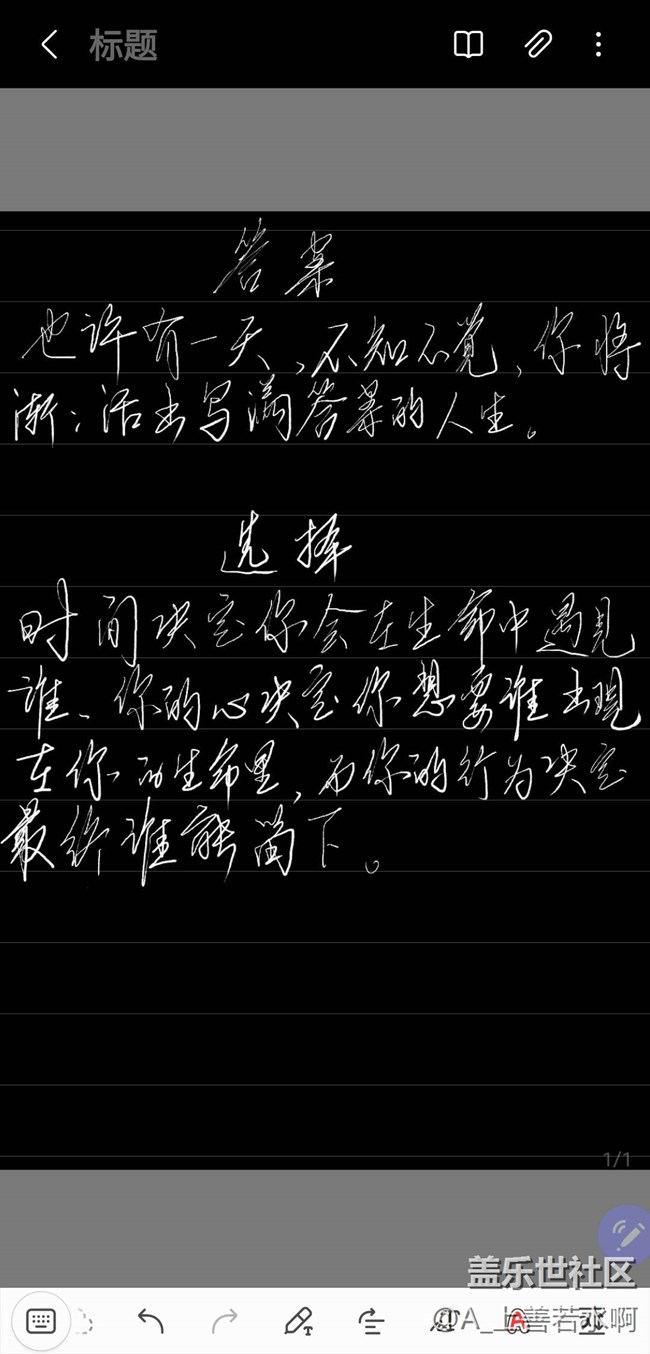 标题
答案
也许有一天,不知不觉,你将
渐:活出写满答案的人生。
选择
时间决定你会在生命中遇见
谁、你的心决定你想要谁出现
在你的生命里,而你的行为决定
最终谁能留下。
1/1
盖乐世社区
@A_上善若水啊